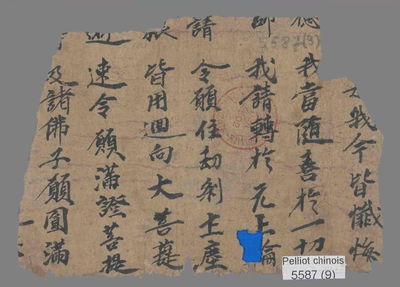 我今皆懺悔
德我當隨喜於一切
師我請轉於无上輪
請令願住劫剎土塵
皆用迴向大菩薩
速令願滿證菩提
及諸佛子願圓滿
5587(9)
Pelliot chinois
5587 (9)